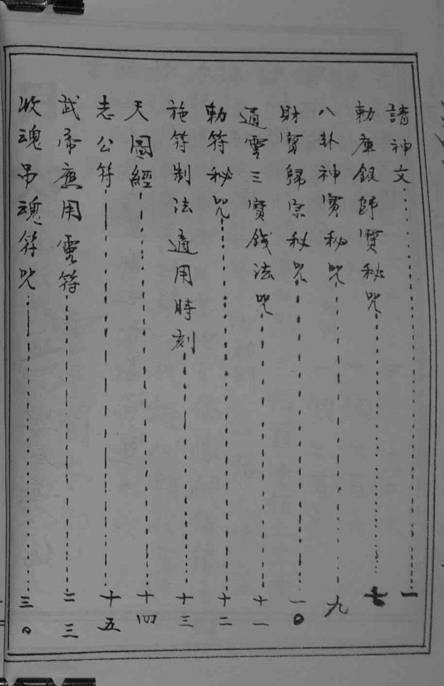 請神文……一
勅庫銀歸寶秘咒……七
八卦神寶秘咒……九
財寶歸宗秘咒……一0
通靈三寶錢法咒……十一
勅符秘咒……十二
施符制法適用時刻……十三
天圖經……十四
志公符……十五
武帝應用靈符……二三
收魂吊魂符咒……三0